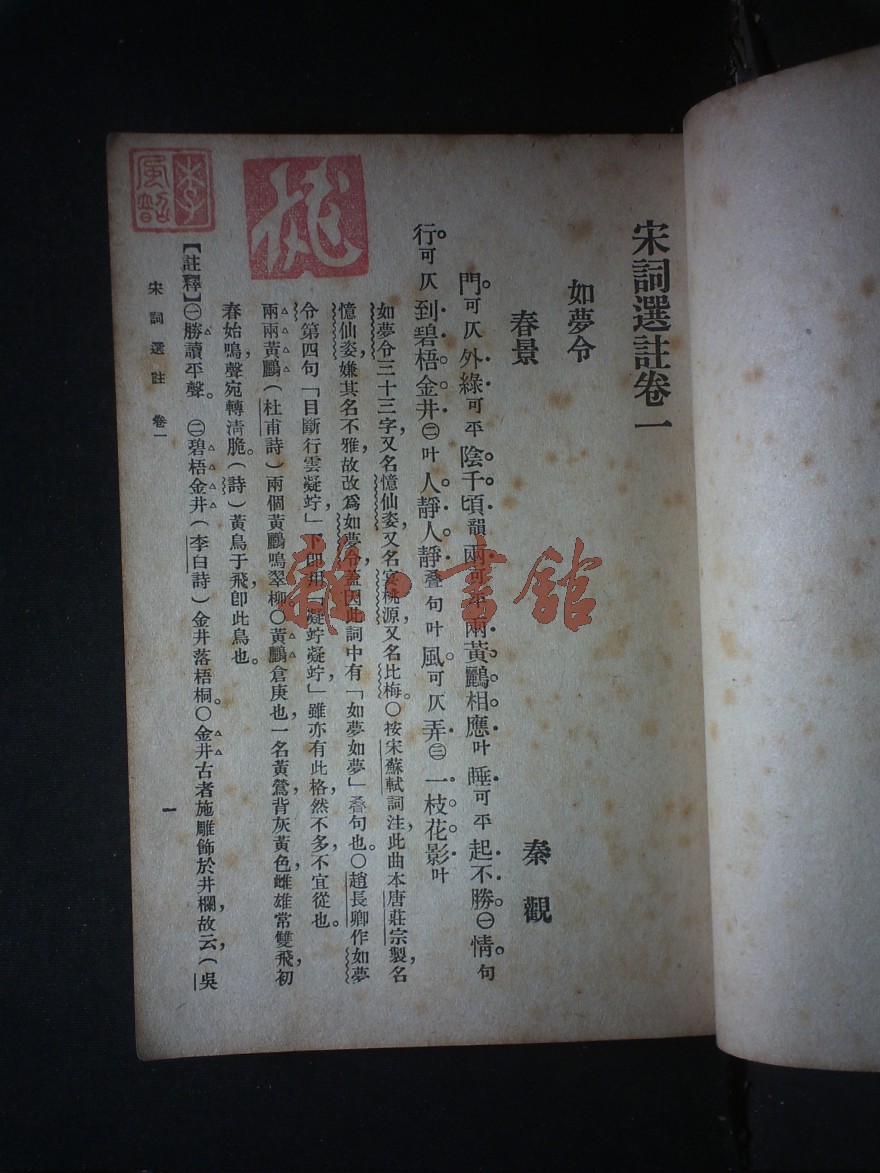 宋詞選註卷一
如夢令
春景
秦觀
門可仄外綠可平陰千頃韻兩可平兩黃鸝相應叶睡可平起不勝㊀情句
行可仄到碧梧金井㊁叶人靜人靜叠句叶風可仄弄㊂一枝花影叶
如夢令三十三字，又名憶仙姿，又名宴桃源，又名比梅。〇按宋蘇軾詞注，此曲本唐莊宗製，名
憶仙姿，嫌其名不雅，故改爲如夢令，蓋因此詞中有「如夢如夢」叠句也。〇趙長卿作如夢
令第四句「目斷行雲凝竚」，下卽用「凝竚凝竚」，雖亦有此格，然不多，不宜從也。
兩兩黃鸝（杜甫詩）兩個黃鸝鳴翠柳。〇黃鸝，倉庚也，一名黃鶯，背灰黃色，雌雄常雙飛，初
春始鳴，聲宛轉清脆。（詩）黃鳥于飛，卽此鳥也。
【註釋】㊀勝讀平聲。㊁碧梧金井（李白詩）金井落梧桐。〇金井，古者施雕飾於井欄，故云，（吳
宋詞選註 卷一
一
雜·書館